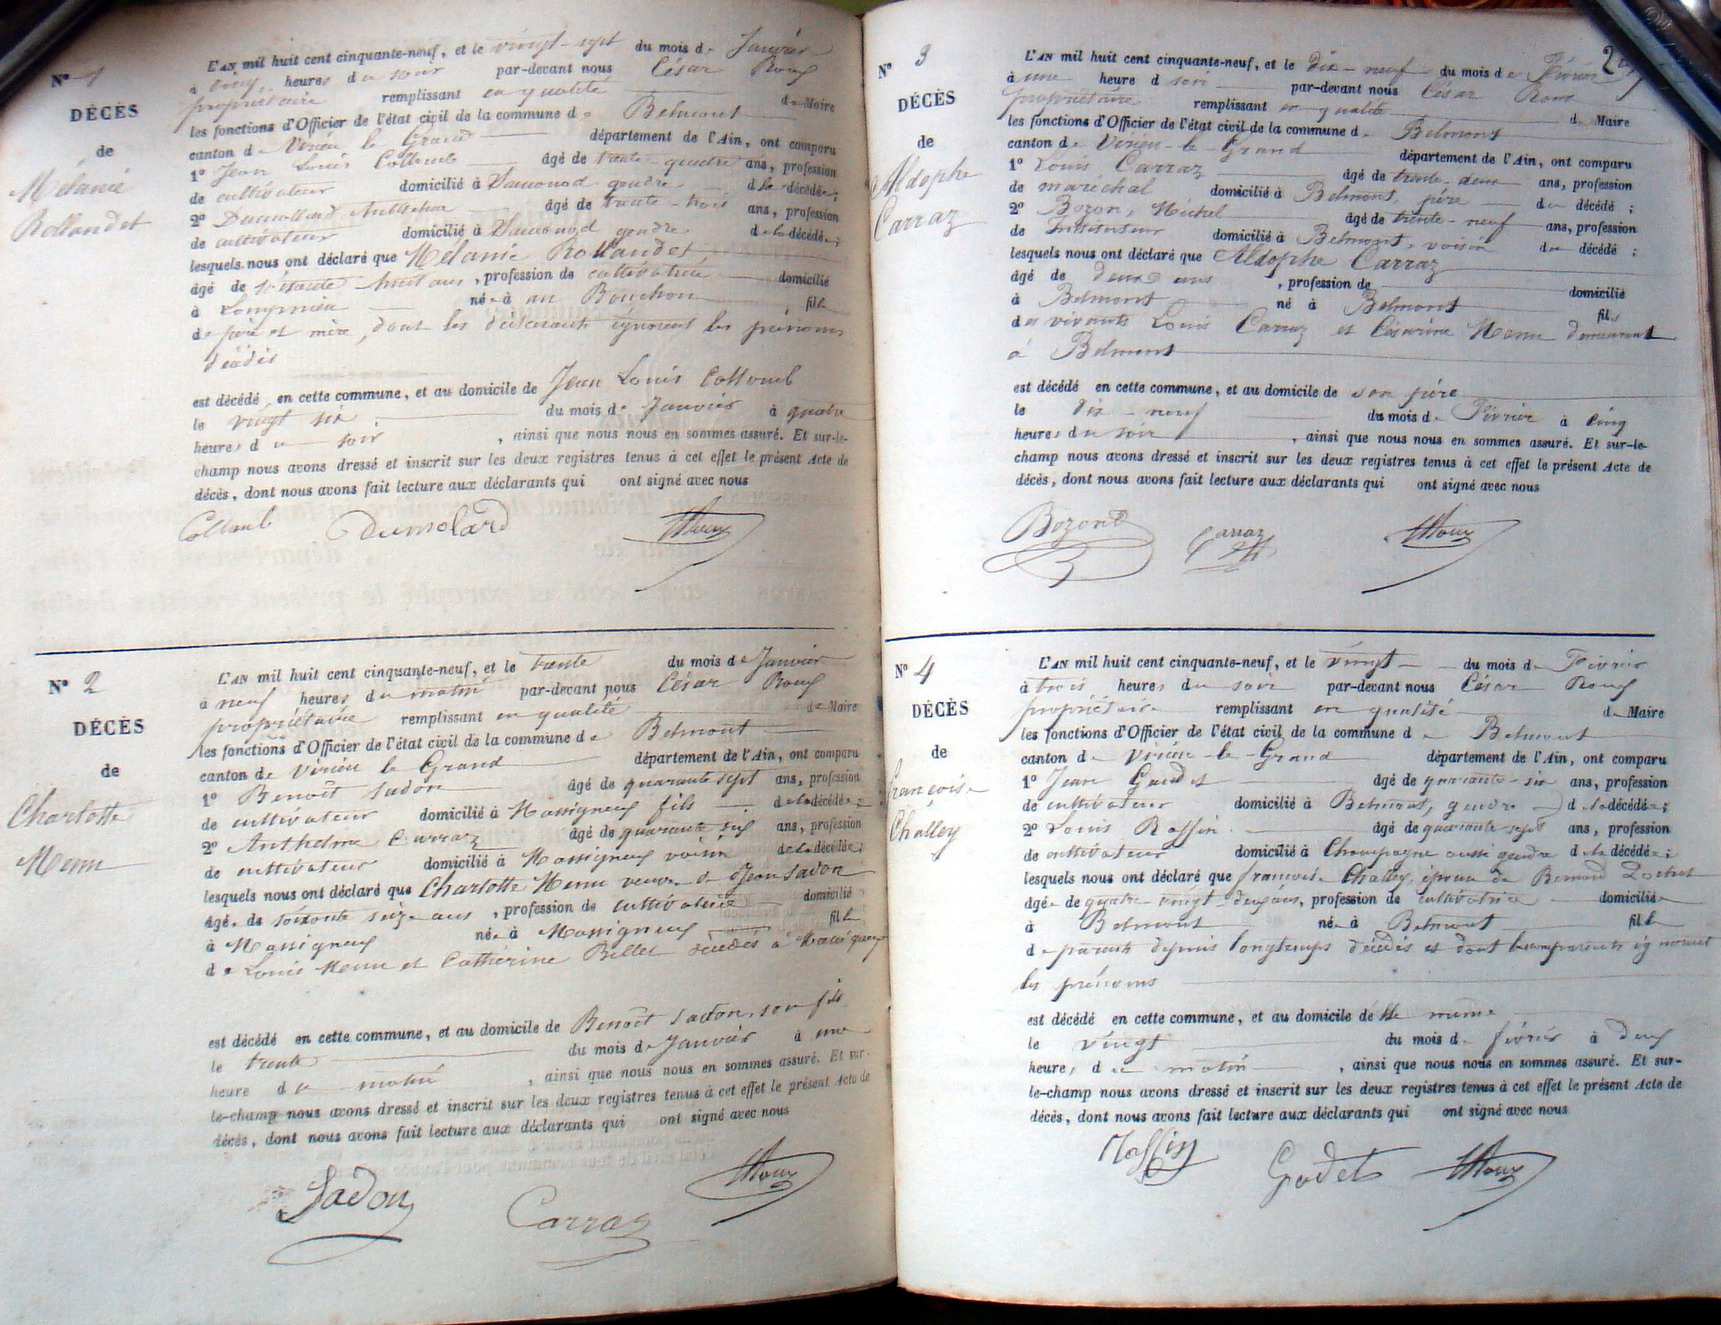 N° 1
DÉCÈS
de
Mélanie
Rollandet
L'AN mil huit cent cinquante-neuf, et le vingt-sept du mois de Janvier
à cinq heures du soir par-devant nous César Roux
propriétaire remplissant en qualité de Maire
les fonctions d'Officier de l'état civil de la commune de Belmont
canton de Virieu le Grand département de l'Ain, ont comparu
1° Jean Louis Collomb âgé de trente-quatre ans, profession
de cultivateur domicilié à gendre de la décédée;
2° Dumollard Anthelme âgé de trente-trois ans, profession
de cultivateur domicilié à gendre de la décédée;
lesquels nous ont déclaré que Mélanie Rollandet
âgé de soixante huit ans, profession de cultivatrice domicilié
à Lompnieu née à au Bouchon fille
de père et mère, dont les déclarants ignorent les prénoms
décédés
est décédé en cette commune, et au domicile de Jean Louis Collomb
le vingt six du mois de Janvier à quatre
heures du soir, ainsi que nous nous en sommes assuré. Et sur-le-
champ nous avons dressé et inscrit sur les deux registres tenus à cet effet le présent Acte de
décès, dont nous avons fait lecture aux déclarants qui ont signé avec nous
Collomb Dumolard Roux
N° 2
DÉCÈS
de
Charlotte
Menu
L'AN mil huit cent cinquante-neuf, et le trente du mois de Janvier
à neuf heures du matin par-devant nous César Roux
propriétaire remplissant en qualité de Maire
les fonctions d'Officier de l'état civil de la commune de Belmont
canton de Virieu le Grand département de l'Ain, ont comparu
1° Benoit Sadon âgé de quarante sept ans, profession
de cultivateur domicilié à Massigneux fils de la décédée;
2° Anthelme Carraz âgé de quarante six ans, profession
de cultivateur domicilié à Massigneux voisin de la décédée;
lesquels nous ont déclaré que Charlotte Menu veuve de Jean Sadon
âgé de soixante seize ans, profession de cultivatrice domicilié
à Massigneux née à Massigneux fille
de Louis Menu et Catherine Billet décédés à Massigneux
est décédé en cette commune, et au domicile de Benoit Sadon, son fils
le trente du mois de Janvier à une
heure du matin, ainsi que nous nous en sommes assuré. Et sur-
le-champ nous avons dressé et inscrit sur les deux registres tenus à cet effet le présent Acte de
décès, dont nous avons fait lecture aux déclarants qui ont signé avec nous
Sadon Carraz Roux
N° 3
DÉCÈS
de
Aldophe
Carraz
L'AN mil huit cent cinquante-neuf, et le dix-neuf du mois de Février
à une heure d soir par-devant nous César Roux
propriétaire remplissant en qualité de Maire
les fonctions d'Officier de l'état civil de la commune d Belmont
canton de Virieu-le-Grand département de l'Ain, ont comparu
1° Louis Carraz âgé de trente-deux ans, profession
de maréchal domicilié à Belmont, père du décédé;
2° Bozon, Michel âgé de trente-neuf ans, profession
de Instituteur domicilié à Belmont, voisin du décédé;
lesquels nous ont déclaré que Aldophe Carraz
âgé de deux ans, profession de domicilié
à Belmont né à Belmont fils
des vivants Louis Carraz et Césarine Menu demeurant
à Belmont
est décédé en cette commune, et au domicile de son père
le dix-neuf du mois de Février à cinq
heures du soir, ainsi que nous nous en sommes assuré. Et sur-le-
champ nous avons dressé et inscrit sur les deux registres tenus à cet effet le présent Acte de
décès, dont nous avons fait lecture aux déclarants qui ont signé avec nous
Bozon Carraz Roux
N° 4
DÉCÈS
de
Françoise
Challey
L'AN mil huit cent cinquante-neuf, et le vingt du mois de Février
à trois heures du soir par-devant nous César Roux
propriétaire remplissant en qualité de Maire
les fonctions d'Officier de l'état civil de la commune d Belmont
canton de Virieu-le-Grand département de l'Ain, ont comparu
1° Jean Godet âgé de quarante-six ans, profession
de cultivateur domicilié à Belmont, gendre de la décédée;
2° Louis Rossin âgé de quarante sept ans, profession
de cultivateur domicilié à Champagne aussi gendre de la décédée;
lesquels nous ont déclaré que Françoise Challey, épouse de Bernard
âgée de quatre-vingt-deux ans, profession de cultivatrice domiciliée
à Belmont née à Belmont fille
de parents depuis longtemps décédés et dont les comparants ignorent
les prénoms
est décédé en cette commune, et au domicile de elle même
le vingt du mois de février à deux
heures du matin, ainsi que nous nous en sommes assuré. Et sur-
le-champ nous avons dressé et inscrit sur les deux registres tenus à cet effet le présent Acte de
décès, dont nous avons fait lecture aux déclarants qui ont signé avec nous
Rossin Godet Roux